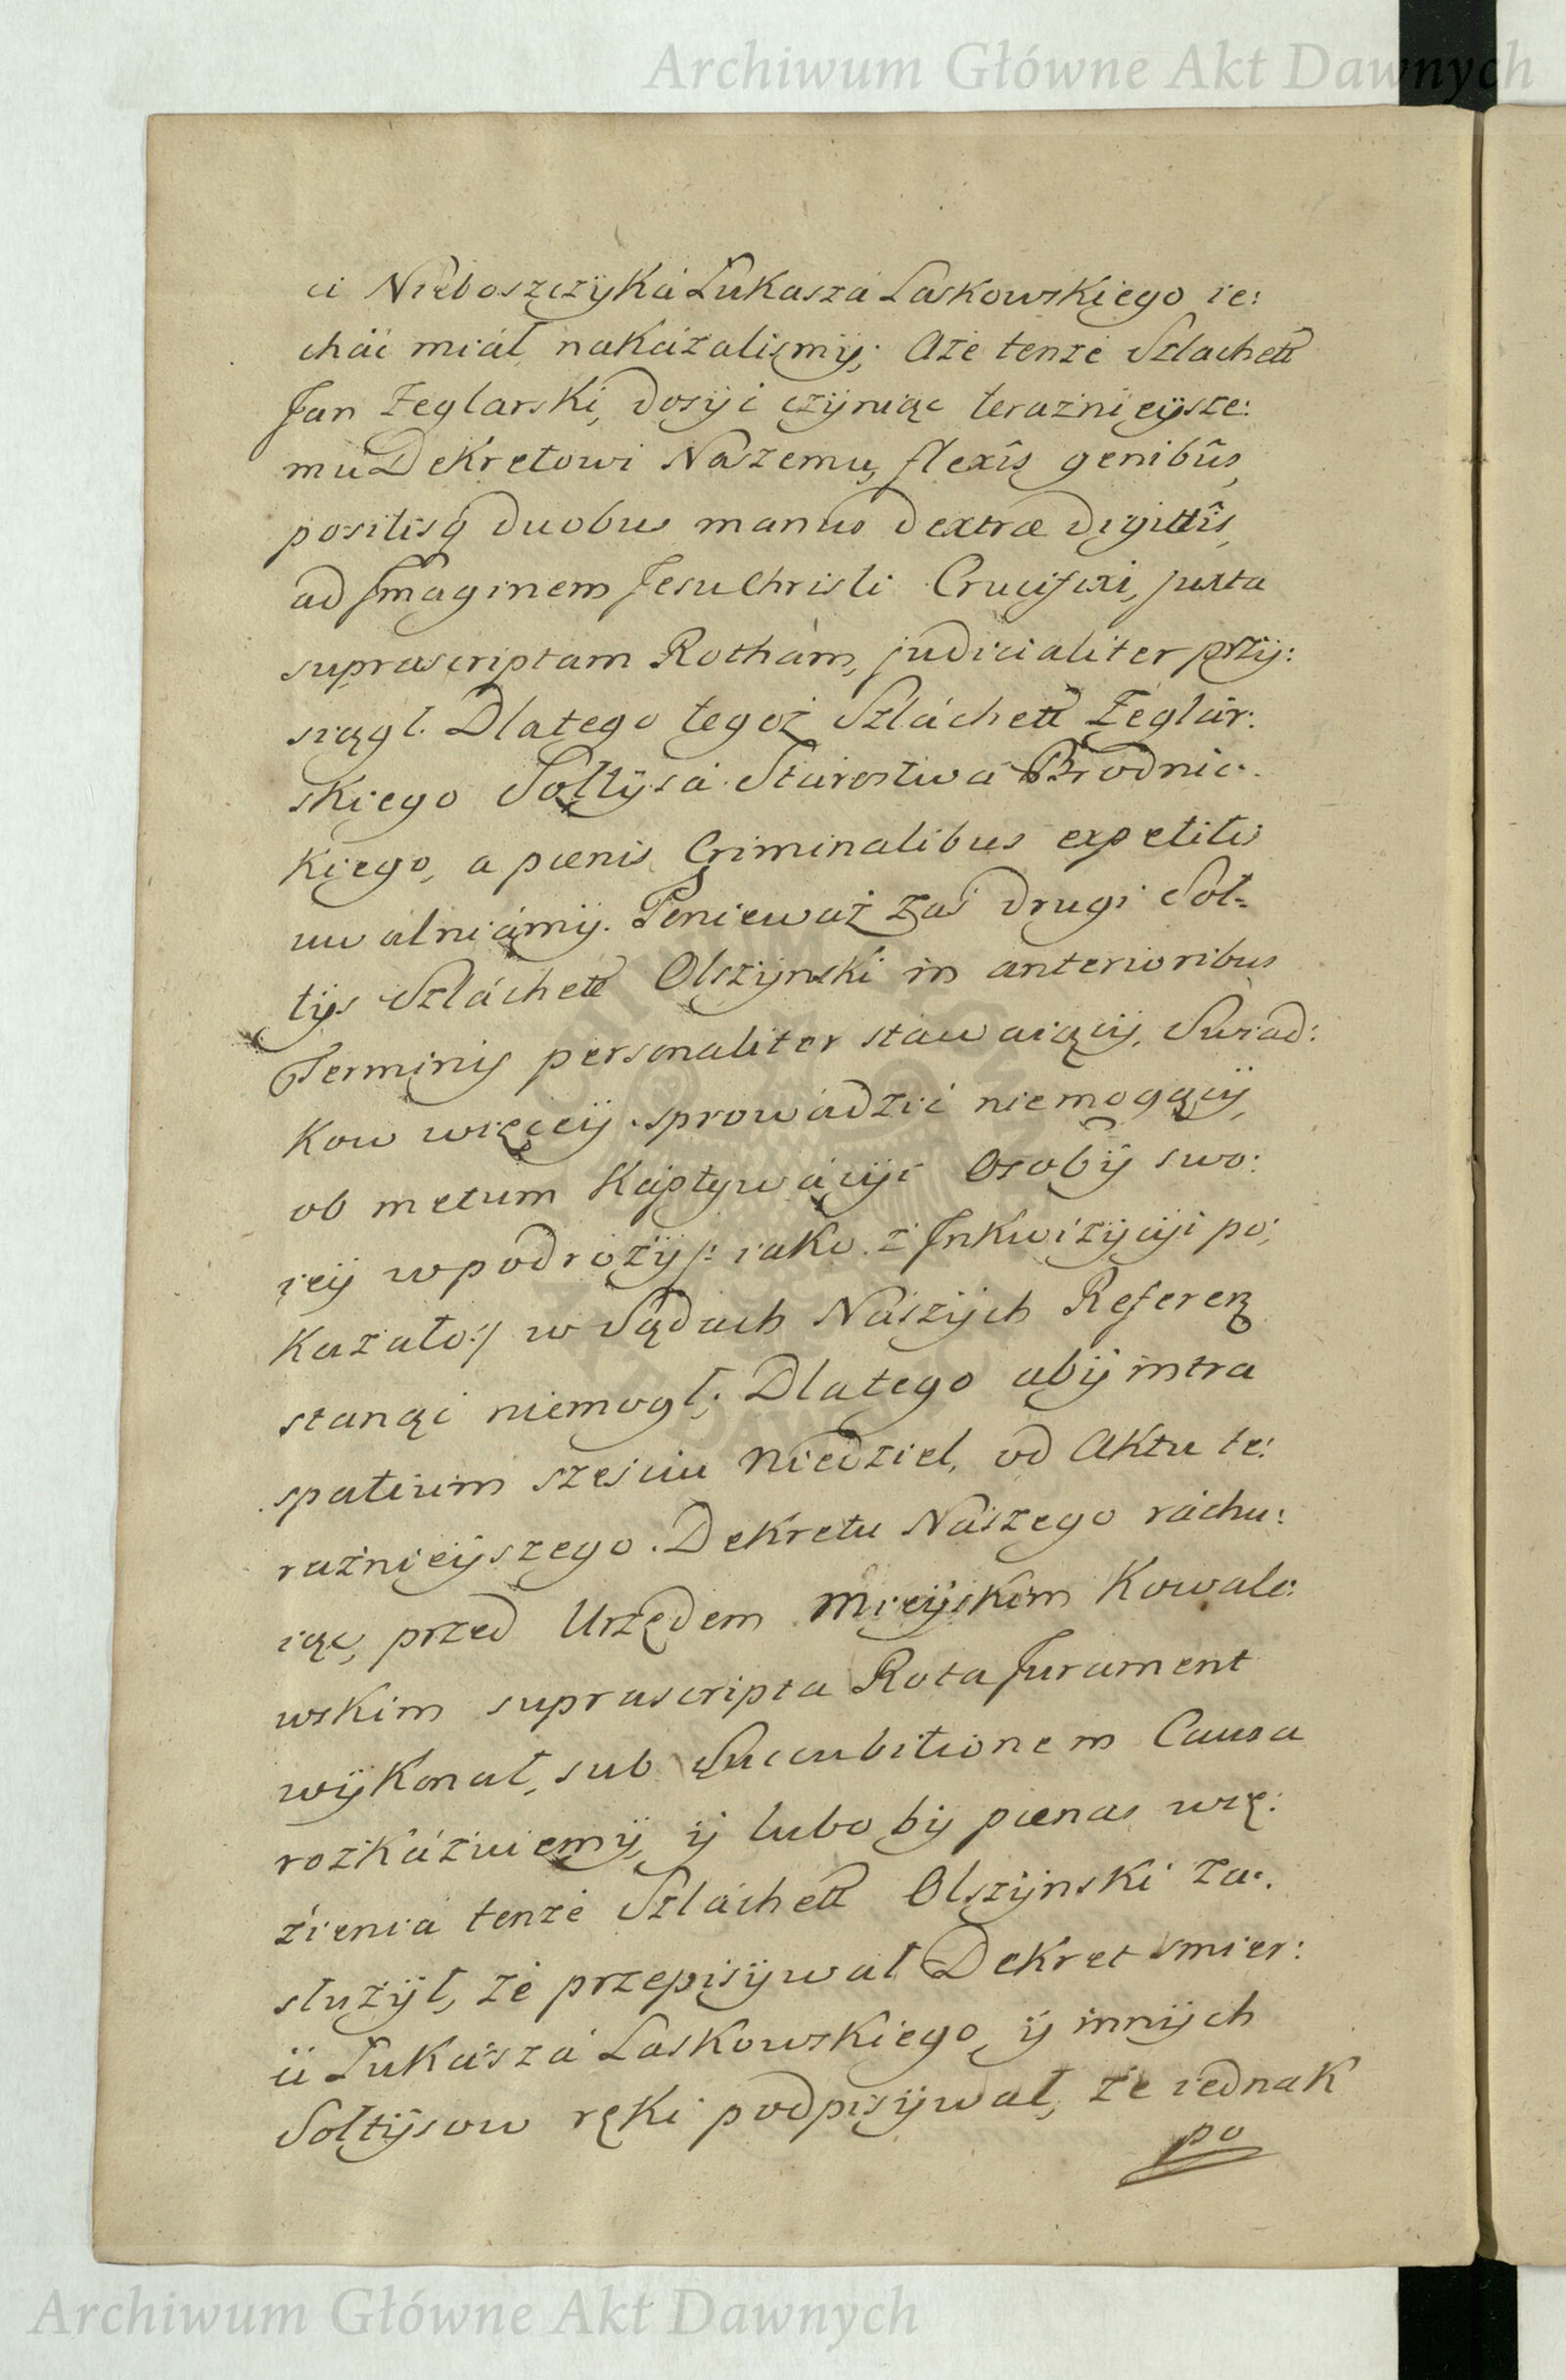 Archiwum Główne Akt Dawnych
ci Nieboszczÿka Łukasza Laskowskiego ie:
chać miał nakazalismÿ; Aże tenże Szlachett
Jan Zeglarski, dosÿć czÿniąc teraznieÿsze:
mu Dekretowi Naszemu, flexîs genibûs,
positisq duobus manus dextræ digittîs,
ad Imaginem Jesu Christi Crucifixi, juxta
suprascriptam Rotham, judicialiter przÿ:
siągł. Dlatego tegoż Szláchett Zeglár:
skiego Sołtÿsa Starostwa Brodnic:
kiego, a pœnis Criminalibus expetitis
uwalniámÿ. Ponieważ zaś drugi Soł=
tÿs Szláchett Olszÿnski in anterioribus
Terminis personaliter stawaiącÿ, Swiad:
kow więceÿ sprowadzić niemogącÿ,
ob metum Kaptÿwácÿi Osobÿ swo:
ieÿ w podrożÿ /: iako z Inkwizÿcÿi po:
kazało :/ w Sądach Naszÿch Referen:
stanąć niemogł; Dlatego abÿ intra
spatium szesciu Niedziel, od Aktu te:
raznieÿszego Dekretu Naszego ráchu:
iąc, przed Urzędem Mieÿskim Kowale:
wskim suprascripta Rota Jurament
wÿkonał, sub Succubitionem Causa
rozkázuiemÿ, ÿ lubo bÿ pœnas wię:
zienia tenże Szláchett Olszÿnski za:
służÿł, że przepisÿwał Dekret smier:
ci Łukasza Laskowskiego, ÿ innÿch
Sołtÿsow ręki podpisÿwał, że iednak
po
Archiwum Główne Akt Dawnych